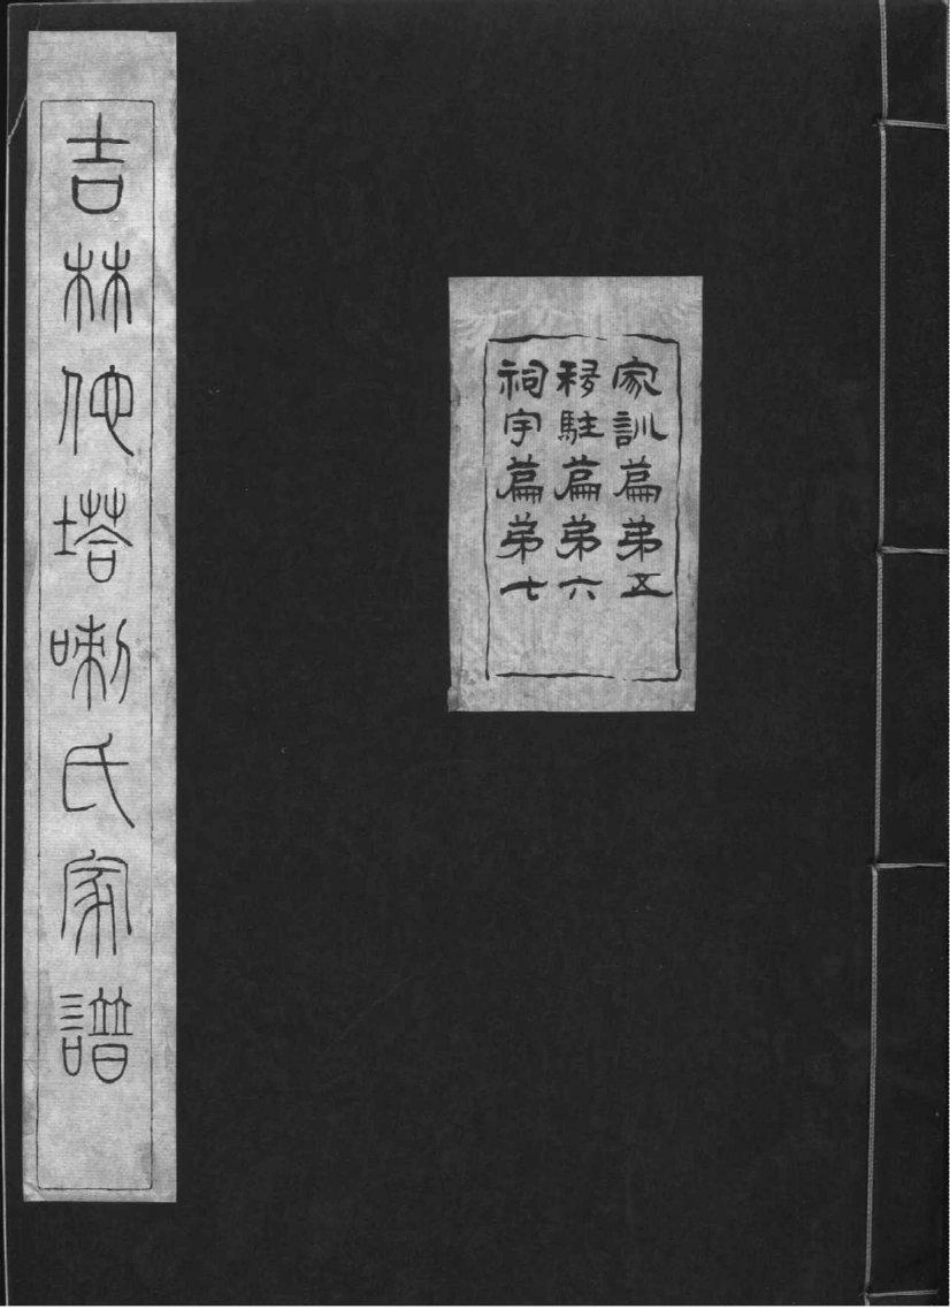 吉林佗塔喇氏家譜
家訓篇弟五
移駐篇弟六
祠宇篇弟七